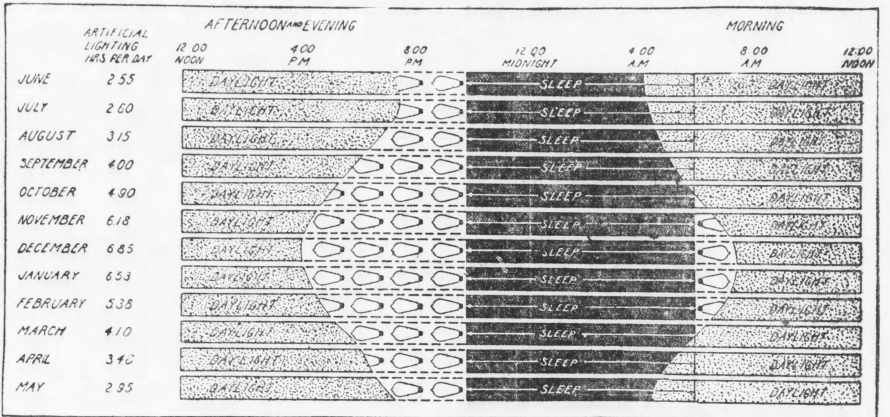 AFTERNOON AND EVENING MORNING
ARTIFICIAL LIGHTING HRS PER DAY
12 00 NOON 4 00 P M 8 00 P M 12 00 MIDNIGHT 4 00 A.M 8 00 A.M 12:00 NOON
JUNE 2 55 DAYLIGHT SLEEP DAYLIGHT
JULY 2 60 DAYLIGHT SLEEP DAYLIGHT
AUGUST 3 15 DAYLIGHT SLEEP DAYLIGHT
SEPTEMBER 4.00 DAYLIGHT SLEEP DAYLIGHT
OCTOBER 4 90 DAYLIGHT SLEEP DAYLIGHT
NOVEMBER 6.18 DAYLIGHT SLEEP DAYLIGHT
DECEMBER 6 85 DAYLIGHT SLEEP DAYLIGHT
JANUARY 6 53 DAYLIGHT SLEEP DAYLIGHT
FEBRUARY 5.38 DAYLIGHT SLEEP DAYLIGHT
MARCH 4.10 DAYLIGHT SLEEP DAYLIGHT
APRIL DAYLIGHT SLEEP DAYLIGHT
MAY 2 95 DAYLIGHT SLEEP DAYLIGHT